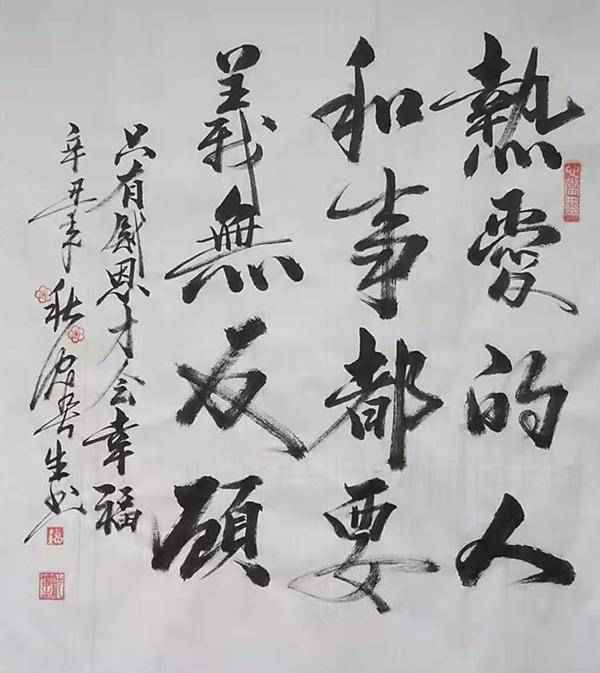 熱愛的人
和事都要
義無反顧
只有感恩才会幸福
辛丑年秋月 生书